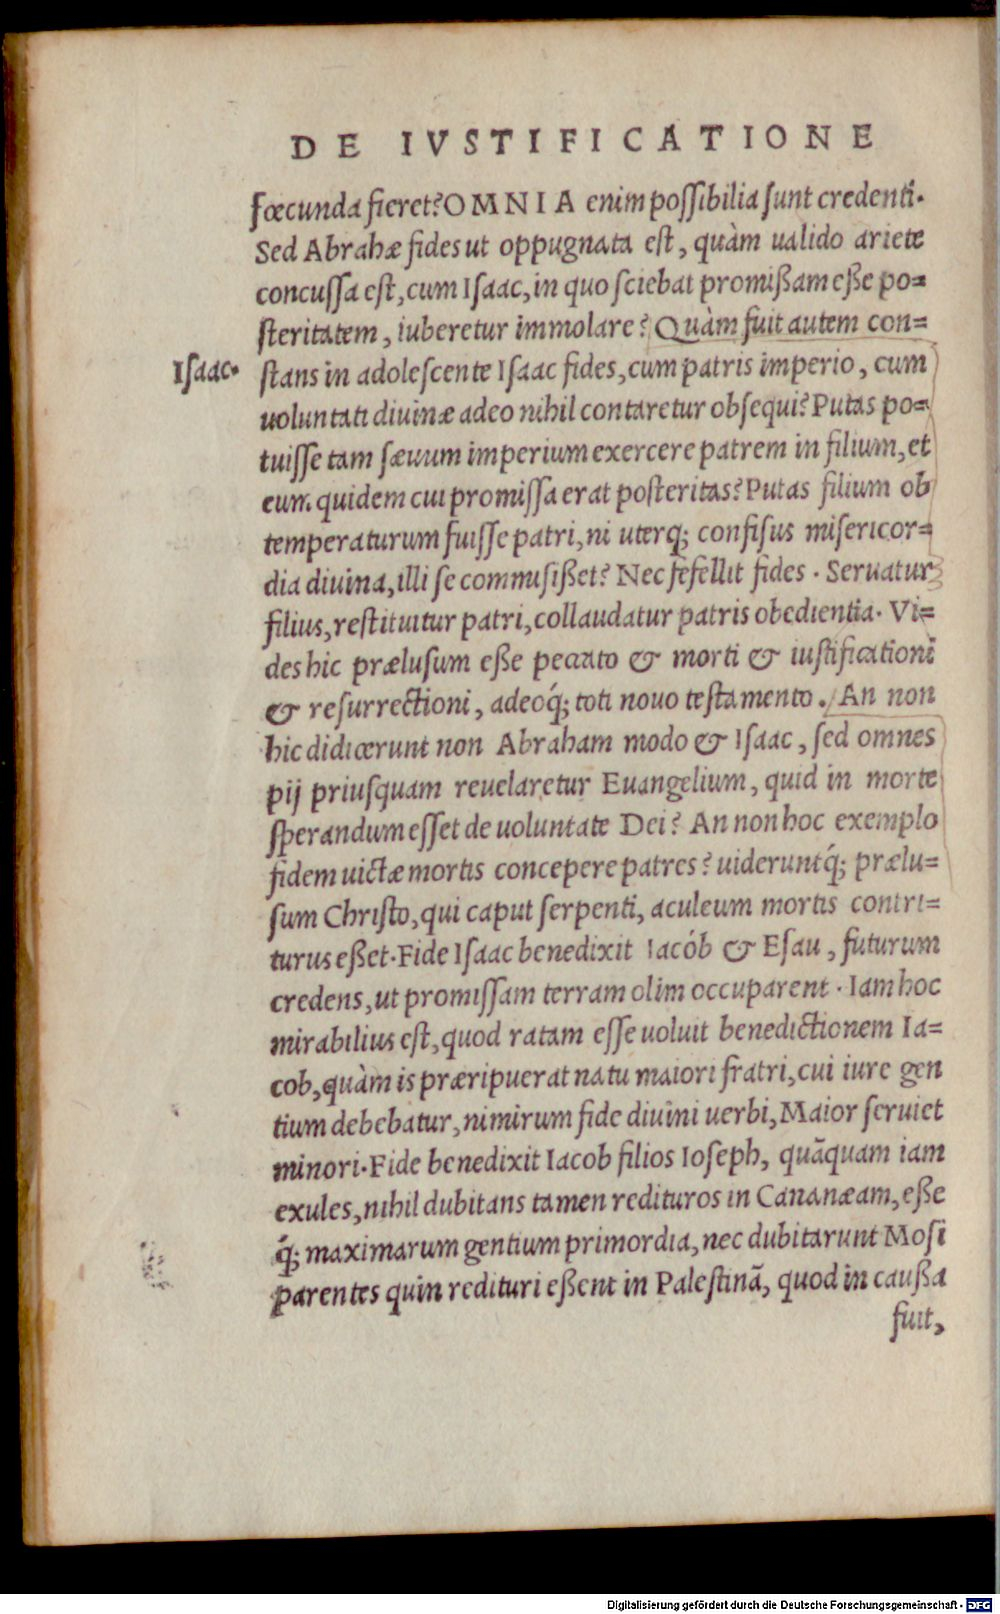 DE IVSTIFICATIONE
fœcunda fieret? OMNIA enim possibilia sunt credenti.
Sed Abrahæ fides ut oppugnata est, quàm ualido ariete
concussa est, cum Isaac, in quo sciebat promißam eße po=
steritatem, iuberetur immolare? Quàm fuit autem con=
Isaac.
stans in adolescente Isaac fides, cum patris imperio, cum
uoluntati diuinæ adeo nihil contaretur obsequi? Putas po=
tuisse tam sæuum imperium exercere patrem in filium, et
eum quidem cui promissa erat posteritas? Putas filium ob
temperaturum fuisse patri, ni uterq; confisus misericor=
dia diuina, illi se commisißet? Nec fefellit fides. Seruatur
filius, restituitur patri, collaudatur patris obedientia. Vi=
des hic prælusum eße peccato & morti & iustificationi
& resurrectioni, adeoq́; toti nouo testamento. An non
hic didicerunt non Abraham modo & Isaac, sed omnes
pij priusquam reuelaretur Euangelium, quid in morte
sperandum esset de uoluntate Dei? An non hoc exemplo
fidem uictæ mortis concepere patres? uideruntq́; prælu=
sum Christo, qui caput serpenti, aculeum mortis contri=
turus eßet. Fide Isaac benedixit Iacób & Esau, futurum
credens, ut promissam terram olim occuparent. Iam hoc
mirabilius est, quod ratam esse uoluit benedictionem Ia=
cob, quàm is præripuerat natu maiori fratri, cui iure gen
tium debebatur, nimirum fide diuini uerbi, Maior seruiet
minori. Fide benedixit Iacob filios Ioseph, quãquam iam
exules, nihil dubitans tamen redituros in Cananæam, eße
q́; maximarum gentium primordia, nec dubitarunt Mosi
parentes quin redituri eßent in Palestinã, quod in caußa
fuit,
Digitalisierung gefördert durch die Deutsche Forschungsgemeinschaft - DFG